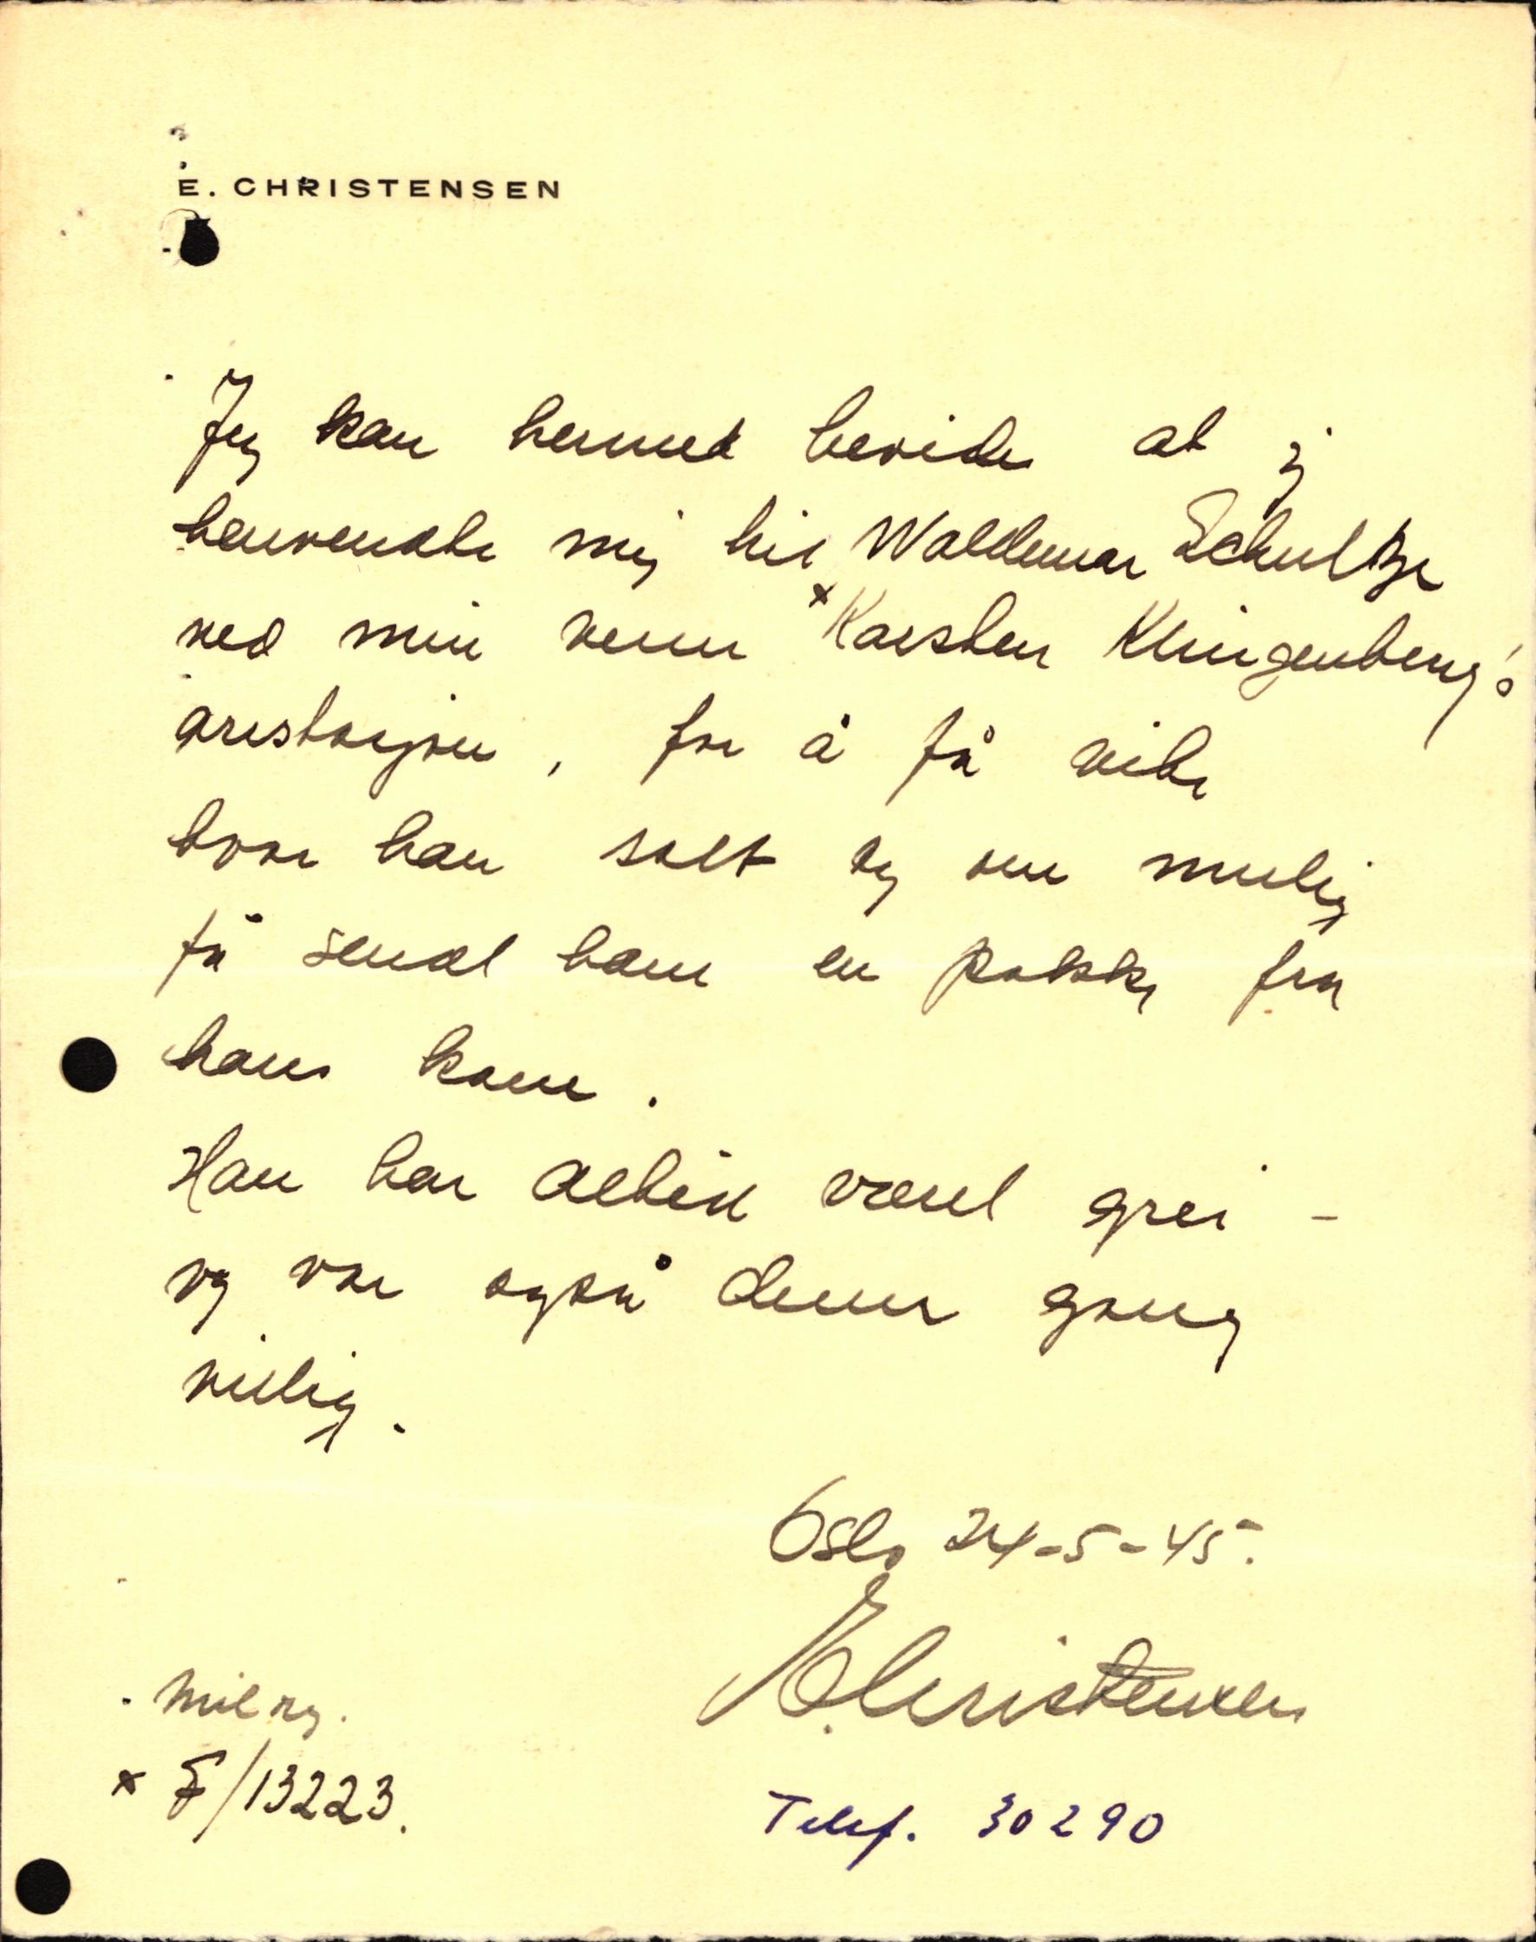 E. CHRISTENSEN
Jeg kan hermed bevide at jeg
henvendte mig til Waldemar Schultze
ved min venn × Karsten Klingenberg's
arestasjon, for å få vite
hvor han satt og om mulig
få sendt ham en pakke fra
hans kone.
Han har altid været grei -
og var også denne gang
villig.
Oslo 24-5-45.
E. Christensen
Milorg.
× F/13223.
Telef. 30290